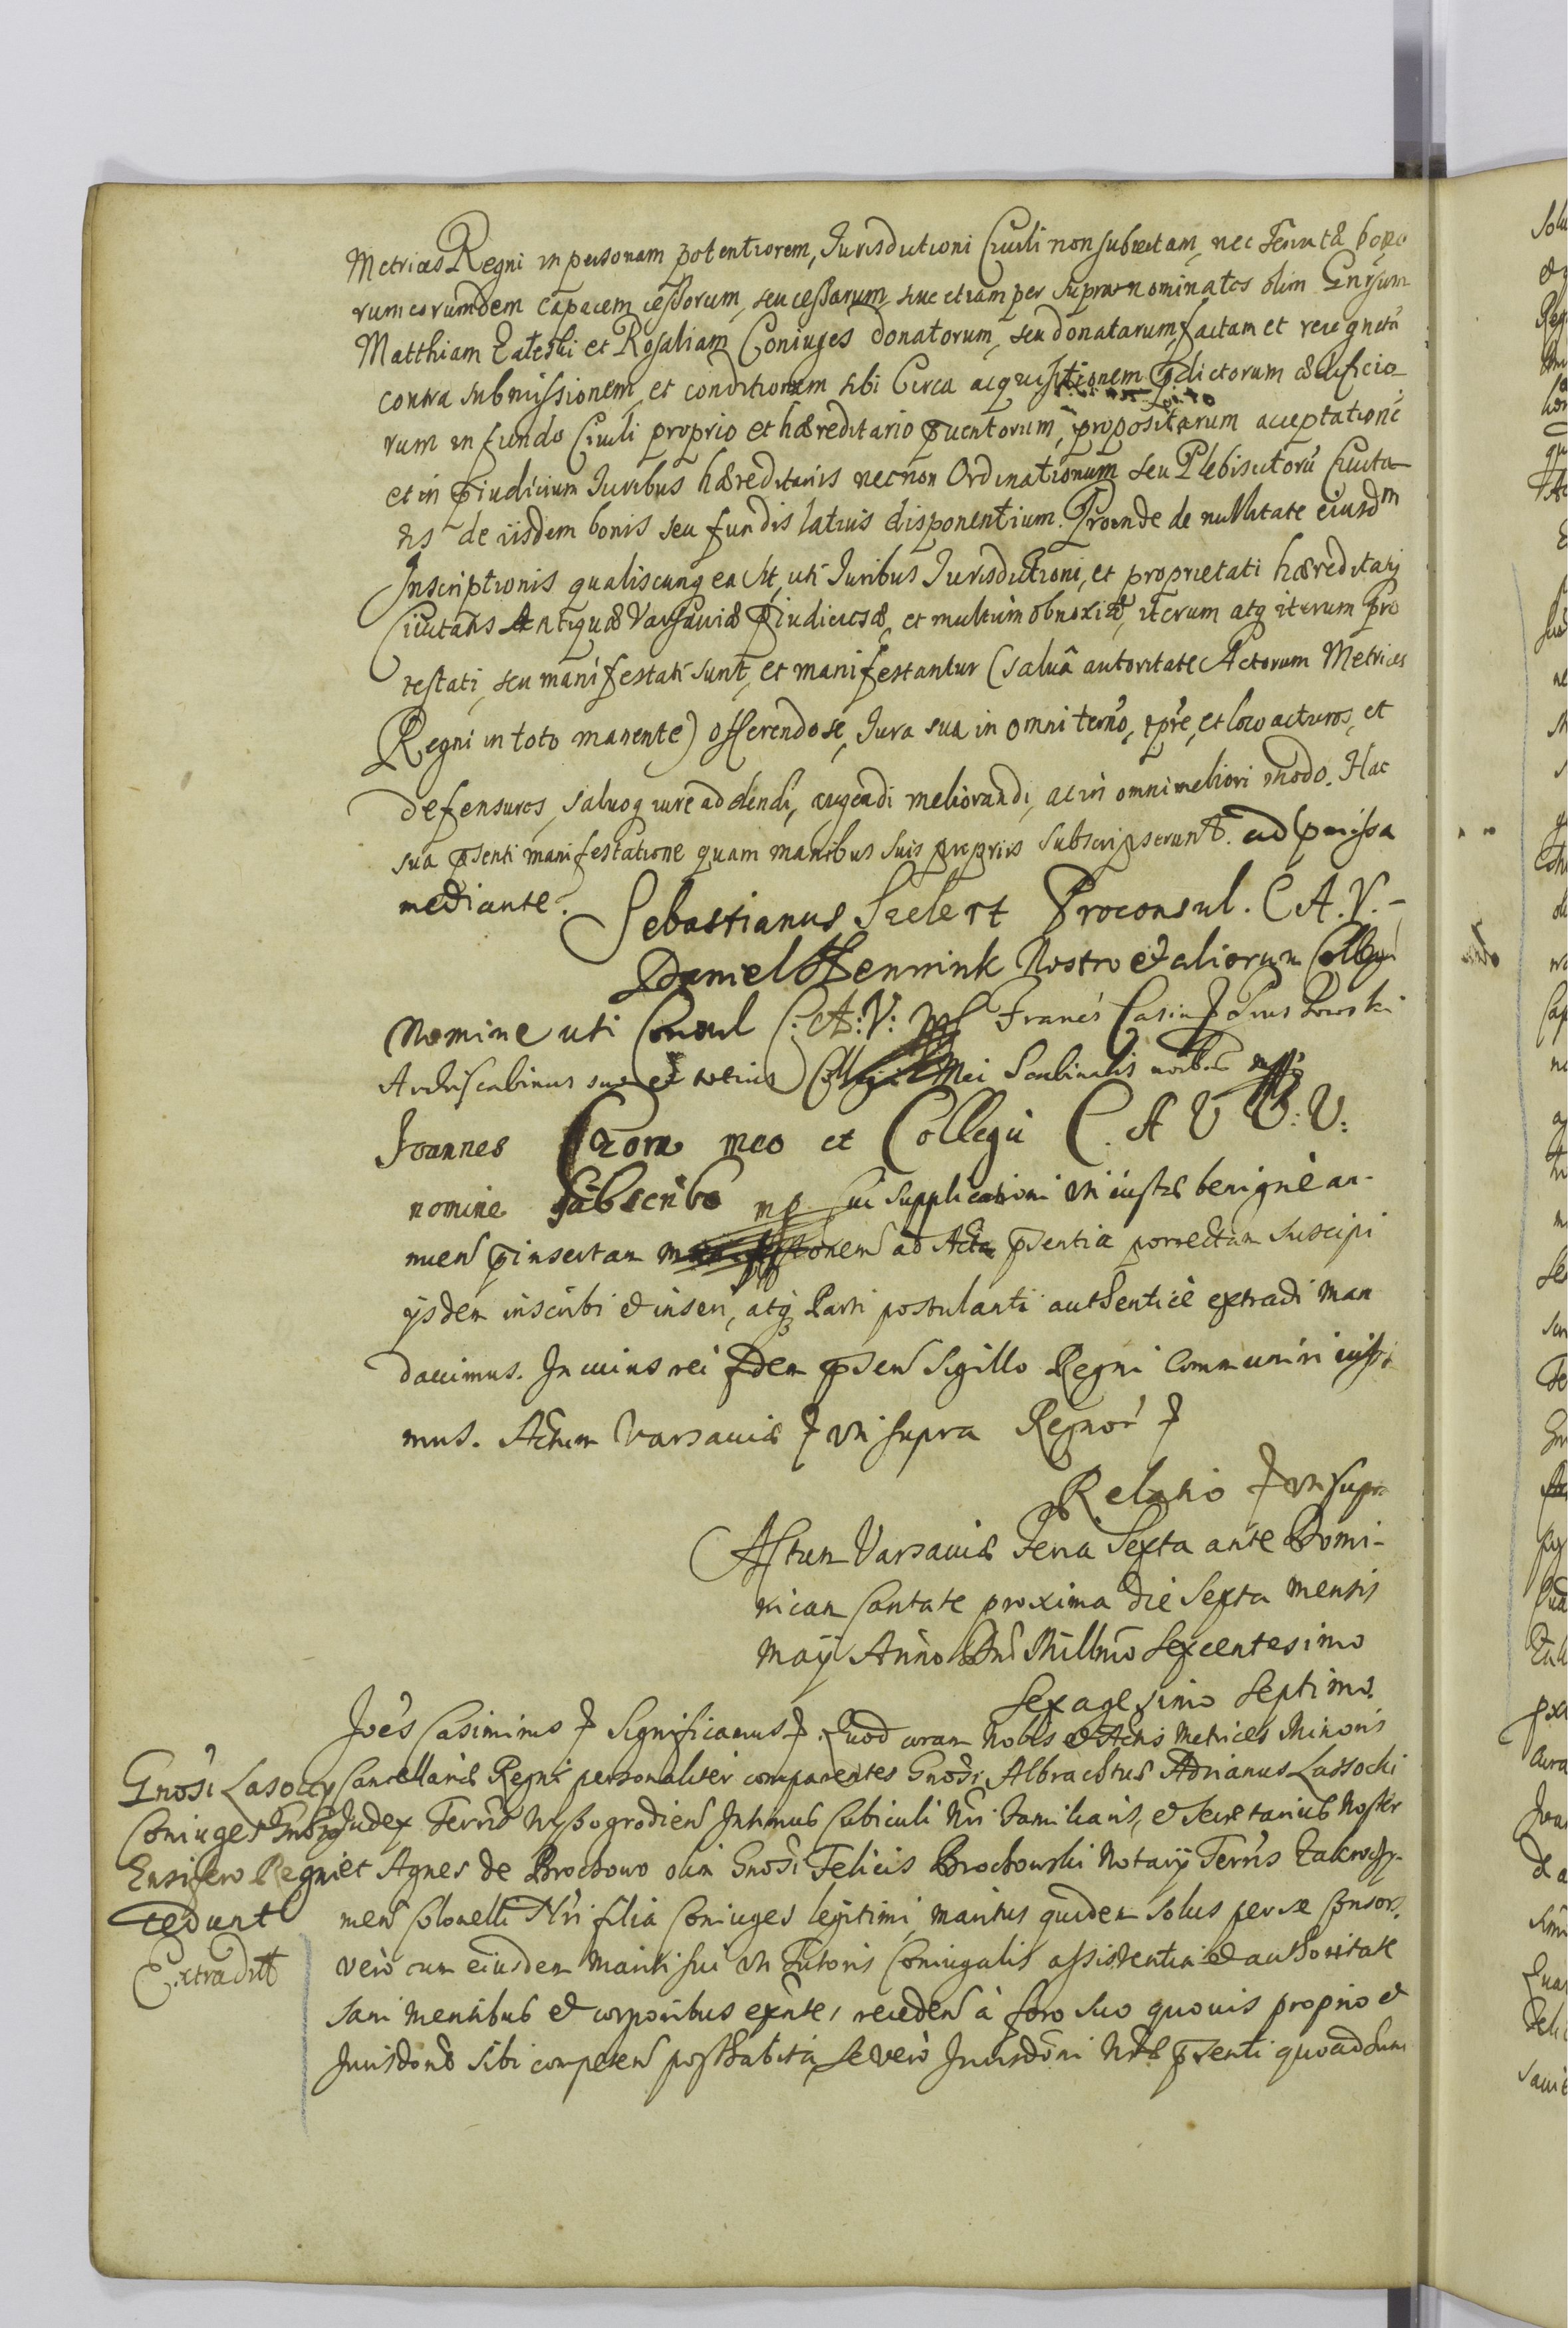 Metrices Regni in personam potentiorem, Jurisdictioni Civili non subiectam, nec Tenutæ bono
rum eorumdem capacem cessorum, seu cessarum, sive etiam per supra nominatos olim Gnrsum
Matthiam Zaleski et Rosaliam Coniuges donatorum, seu donatarum, factam et recognitã
contra submissionem, et conditionem sibi Circa acquisitionem pdictorum ædificio
rum in fundo Civili proprio et hæreditario pventorum, propositarum acceptationẽ
et in piudicium Juribus hæreditariis nec non Ordinationum seu Plebiscitorũ Civita
tis de iisdem bonis seu fundis latius disponentium. Proinde de nullitate eiusdm
Inscriptionis qualiscunq ea sit, uti Juribus Jurisdictioni, et proprietati hæreditarij
Civitatis Antiquæ Varsaviæ piudiciosæ, et multum obnoxiæ, iterum atq iterum Pro
testati, seu manifestati sunt, et manifestantur (salvâ autoritate Actorum Metrices
Regni in toto manente) offerendo se, Jura sua in omni termo, tpre, et loco acturos, et
defensuros, salvoq iure addendi, augendi meliorandi, ac in omni meliori modo. Hac
sua psenti manifestatione quam manibus suis propriis subscripserunt. ad pmissa
mediante.
Sebastianus Szelert Proconsul. C A. V.
Daniel Hennink Nostro et aliorum Collegii
Nomine uti Consul C: A: V: Francis Casim
Archiscabinus suo et totius Collegii Mei Scabinalis noie
Joannes Czora meo et Collegii C. A V V: V:
nomine Subscribo mp supplicationi uti iustæ benignè an-
nuen pinsertam ad Acta psentia porrectam suscipi
ijsdem inscribi et inseri, atq Parti postulanti authenticè extradi man
davimus. In cuius rei fidem psen Sigillo Regni Communiri iussi
mus. Actum Varsaviæ uti supra Regnor
Relatio uti supra
Actum Varsaviæ Feria Sexta ante Domi-
nicam Cantate proxima die Sexta mensis
Maij Anno Dni Millmo Sexcentesimo
Sexagesimo Septimo.
Joes Casimirus Significamus. Quod coram Nobis et Actis Metrices Minoris
Gnosi Lasoccy
Cancellariæ Regni personaliter comparentes Gnosi Albrachtus Adrianus Lassocki
Coniuges Gnoso
Judex Terris Wyssogrodien Intimus Cubiculi Nri Familiaris, et Secretarius Noster
Ensifero Regni
et Agnes de Brochowo olim Gnosi Felicis Brochowski Notarij Terris Zakroczy-
cedunt
men Colonelli Nri filia Coniuges legitimi, maritus quidem solus per se Consors
Extradit
verò cum eiusdem Mariti sui uti Tutoris Coniugalis assistentia et authoritate
sani mentibus et corporibus exnte, receden à foro suo quovis proprio et
Jurisdone sibi competen posthabita, se verò Jurisdoni Nræ psenti quoad hunc